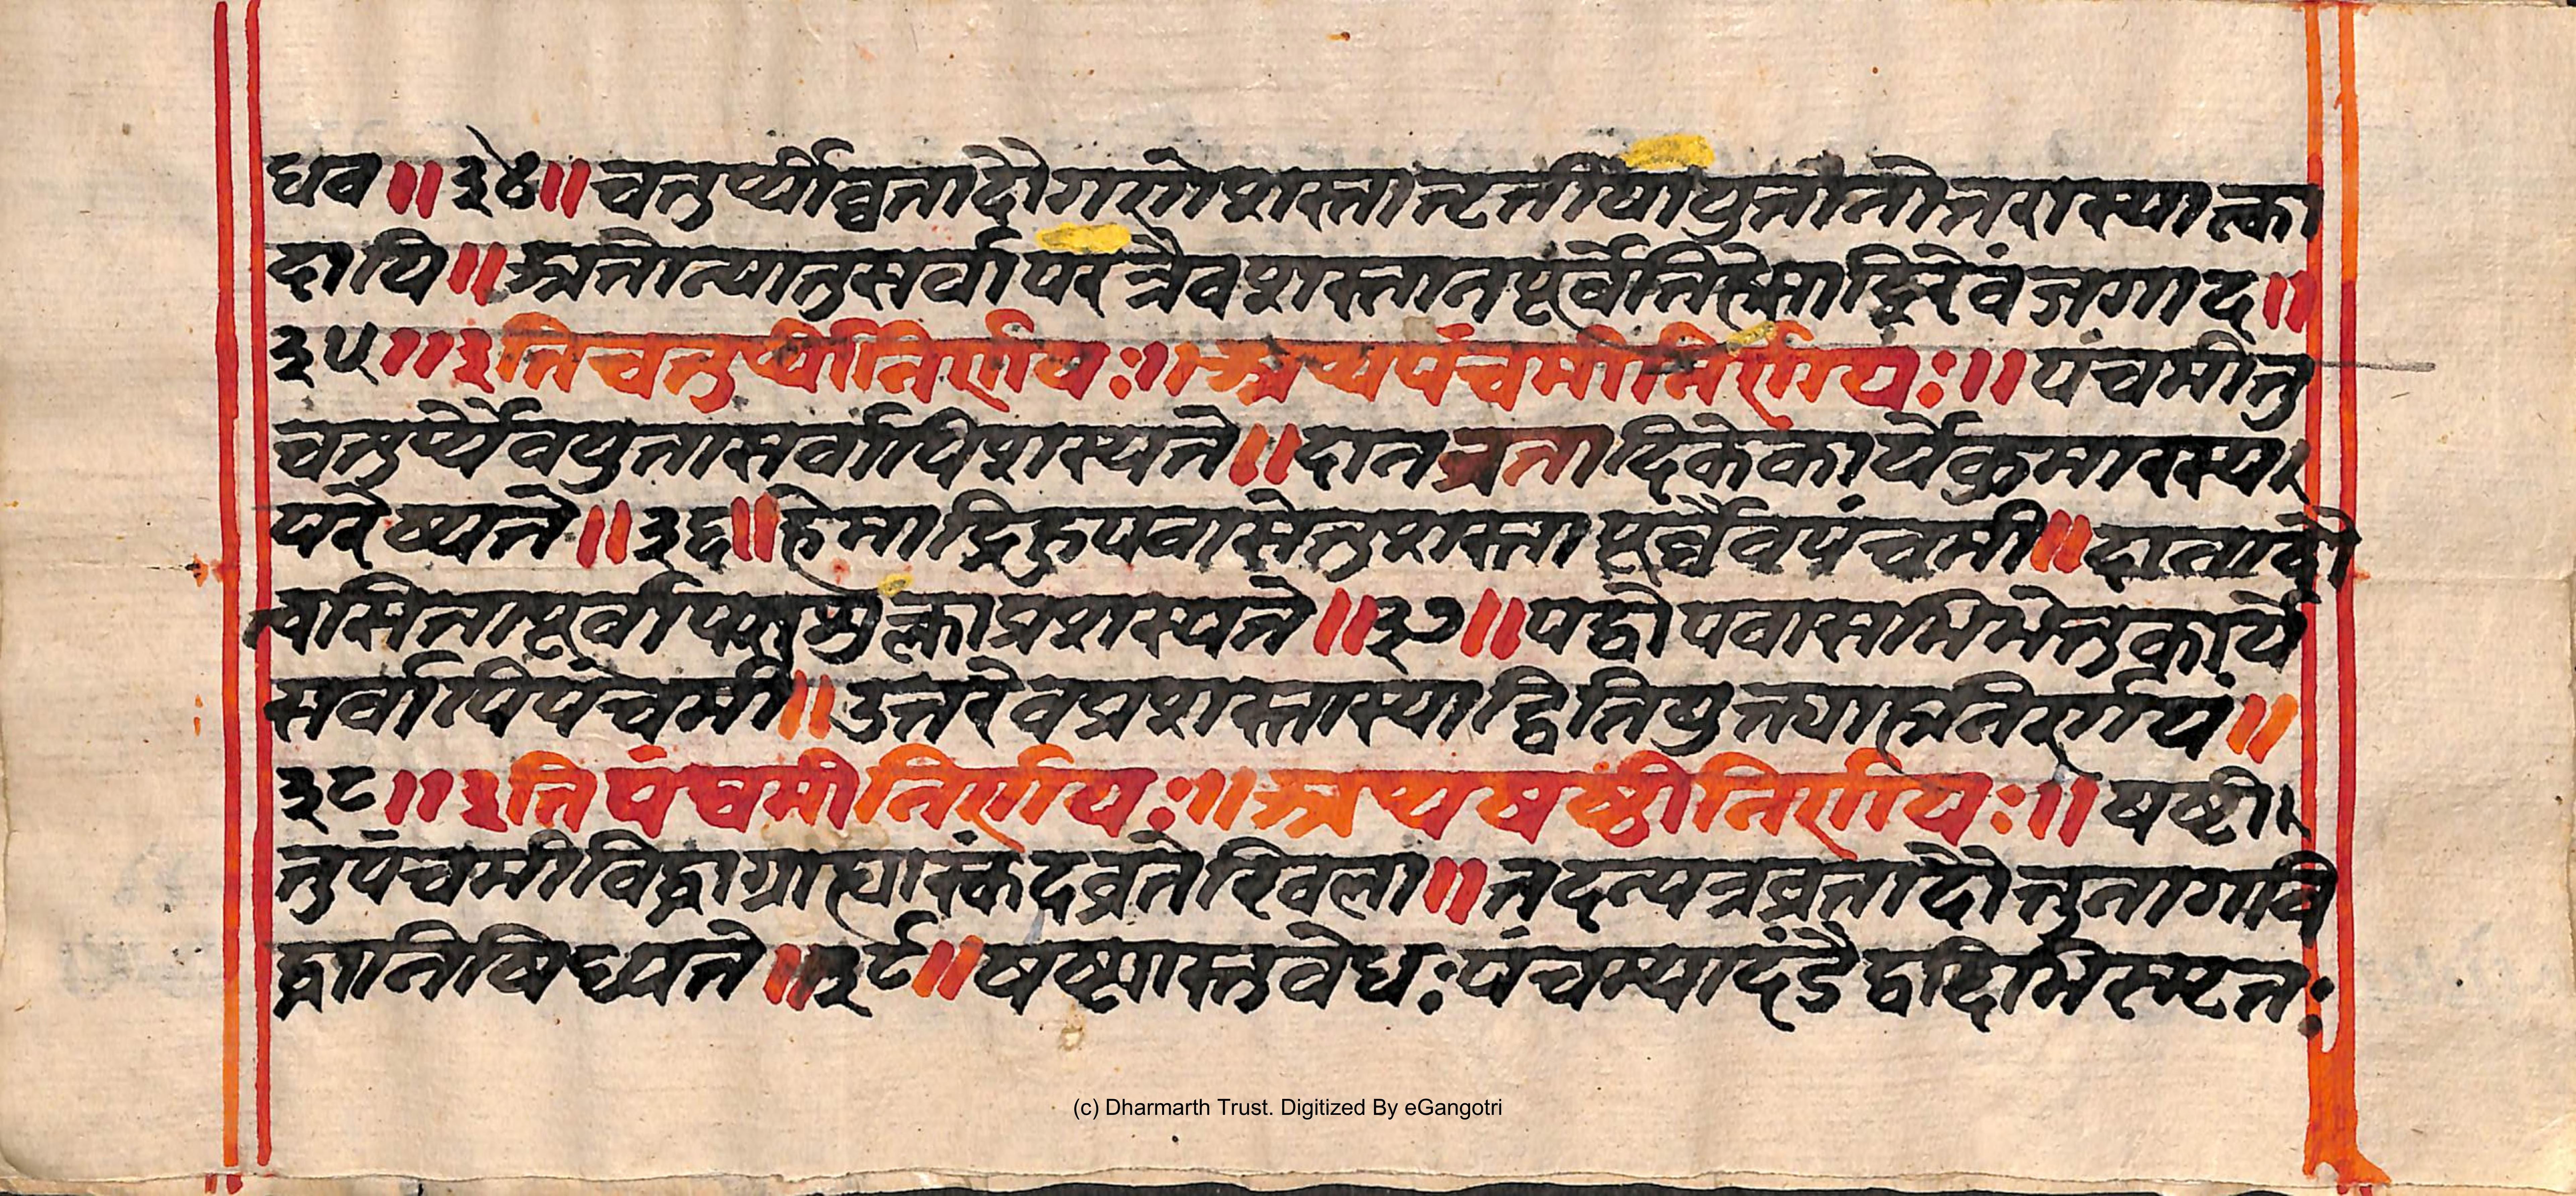 धव ॥ ३४ ॥ चतुर्थीव्रतादौगणेशस्तातृतीयायुतातोत्तरास्यात्का
दापि ॥ अतोन्यातुसर्वापरत्रैवशस्तानपूर्वेतिहेमाद्रिरेवंजगाद ॥
३५ ॥ इतिचतुर्थीनिर्णयः ॥ अथपंचमीनिर्णयः ॥ पंचमीतु
चतुर्थ्यैवयुतासर्वापिशस्यते ॥ दानव्रतादिकेकार्येकुमारस्य
परेष्यते ॥ ३६ ॥ हेमाद्रिरुपवासेतुशस्तापूर्वैवपंचमी ॥ दानादौ
चासितापूर्वापराशुक्लाप्रशस्यते ॥ ३७ ॥ यद्वोपवासभिमेतुकार्ये
सर्वापिपंचमी ॥ उत्तरेवप्रशस्तास्याद्वितियुक्त्यात्रनिर्णयं ॥
३८ ॥ इतिपंचमीनिर्णयः ॥ अथषष्ठीनिर्णयः ॥ षष्टी
तुपंचमीविद्धाग्राह्यास्कंदव्रतेखिला ॥ तदन्यत्रव्रतादौतुनागवि
द्धानिषिध्यते ॥ ३९ ॥ षष्ट्यास्तुवेधःपंचम्यादंडैर्द्वादशभिस्मृतः
(c) Dharmarth Trust. Digitized By eGangotri